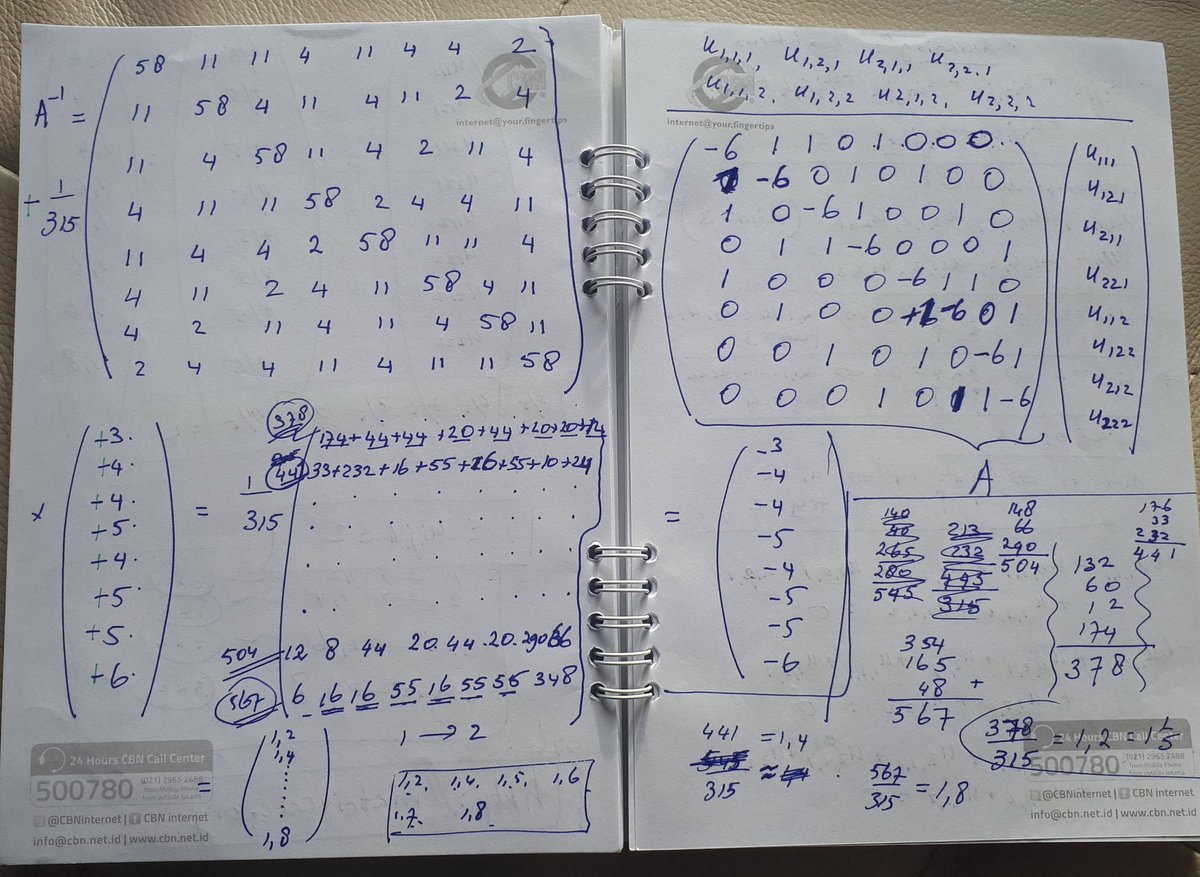 A⁻¹ =
+ 1/315
58 11 11 4 11 4 4 2
11 58 4 11 4 11 2 4
11 4 58 11 4 2 11 4
4 11 11 58 2 4 4 11
11 4 4 2 58 11 11 4
4 11 2 4 11 58 4 11
4 2 11 4 11 4 58 11
2 4 4 11 4 11 11 58
internet@your.fingertips
×
+3
+4
+4
+5
+4
+5
+5
+6
= 1/315
378
174+44+44+20+44+20+20+12
441 33+232+16+55+16+55+10+24
504 12 8 44 20 44 20 290 66
567 6 16 16 55 16 55 55 348
=
1,2
1,4
1,8
1 → 2
1,2, 1,4, 1,5, 1,6
1,7 1,8
24 Hours CBN Call Center
500780
(021) 2965 2488
from Mobile Phone
from outside Jakarta
@CBNinternet | CBN internet
info@cbn.net.id | www.cbn.net.id
u1,1,1, u1,2,1 u2,1,1 u2,2,1
u1,1,2, u1,2,2 u2,1,2, u2,2,2
internet@your.fingertips
-6 1 1 0 1 0 0 0
1 -6 0 1 0 1 0 0
1 0 -6 1 0 0 1 0
0 1 1 -6 0 0 0 1
1 0 0 0 -6 1 1 0
0 1 0 0 1 -6 0 1
0 0 1 0 1 0 -6 1
0 0 0 1 0 1 1 -6
u111
u121
u211
u221
u112
u122
u212
u222
A
=
-3
-4
-4
-5
-4
-5
-5
-6
140
40
265
280
545
213
232
445
315
148
66
290
504
176
33
232
441
132
60
12
174
378
354
165
48 +
567
441/315 = 1,4
567/315 = 1,8
378/315 = 1,2 = 1 1/5
500780
(021) 2965 2488
from Mobile Phone
from outside Jakarta
@CBNinternet | CBN internet
info@cbn.net.id | www.cbn.net.id